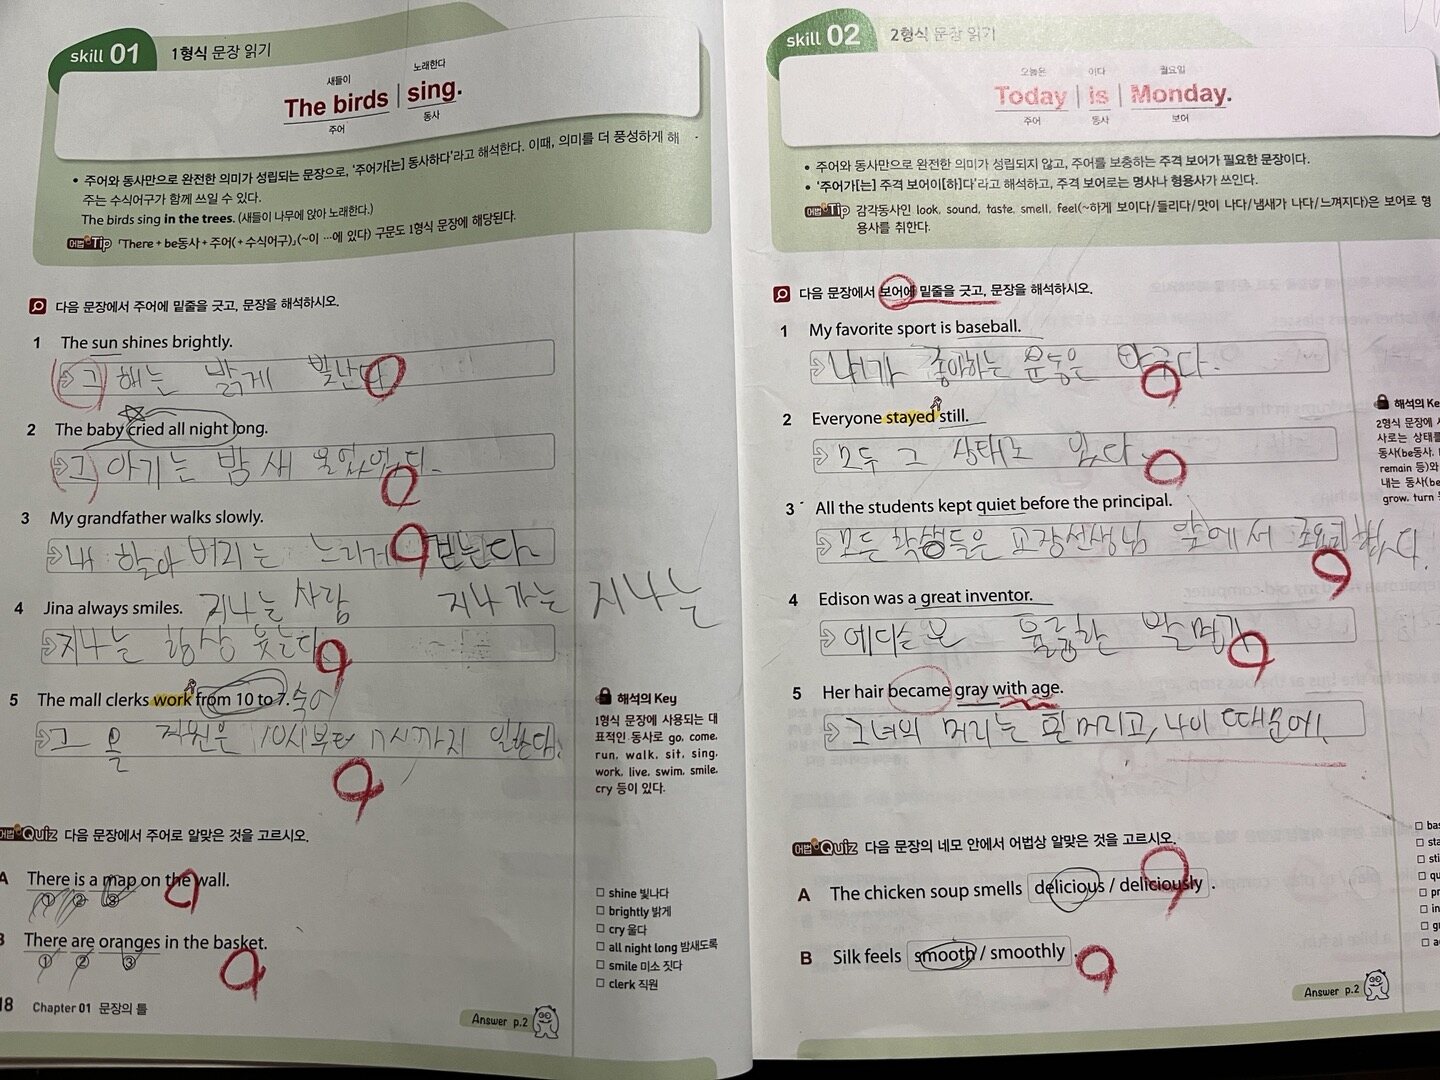 skill 01 1형식 문장 읽기
새들이 노래한다
The birds | sing.
주어 동사
• 주어와 동사만으로 완전한 의미가 성립되는 문장으로, '주어가[는] 동사하다'라고 해석한다. 이때, 의미를 더 풍성하게 해
주는 수식어구가 함께 쓰일 수 있다.
The birds sing in the trees. (새들이 나무에 앉아 노래한다.)
어법 Tip 「There + be동사 + 주어(+ 수식어구)」(~이 …에 있다) 구문도 1형식 문장에 해당된다.
다음 문장에서 주어에 밑줄을 긋고, 문장을 해석하시오.
1 The sun shines brightly.
그 해는 밝게 빛난다
2 The baby cried all night long.
그 아기는 밤새 울었다.
3 My grandfather walks slowly.
내 할아버지는 느리게 걷는다.
4 Jina always smiles. 지나는 사람 지나가는 지나는
지나는 항상 웃는다.
5 The mall clerks work from 10 to 7. 숙어
그 몰 직원은 10시부터 까지 일한다.
해석의 Key
1형식 문장에 사용되는 대
표적인 동사로 go, come,
run, walk, sit, sing,
work, live, swim, smile,
cry 등이 있다.
어법 Quiz 다음 문장에서 주어로 알맞은 것을 고르시오.
A There is a map on the wall.
① ② ③
B There are oranges in the basket.
① ② ③
□ shine 빛나다
□ brightly 밝게
□ cry 울다
□ all night long 밤새도록
□ smile 미소 짓다
□ clerk 직원
18 Chapter 01 문장의 틀
Answer p.2
skill 02 2형식 문장 읽기
오늘은 이다 월요일
Today | is | Monday.
주어 동사 보어
• 주어와 동사만으로 완전한 의미가 성립되지 않고, 주어를 보충하는 주격 보어가 필요한 문장이다.
• '주어가[는] 주격 보어이[하]다'라고 해석하고, 주격 보어로는 명사나 형용사가 쓰인다.
어법 Tip 감각동사인 look, sound, taste, smell, feel(~하게 보이다/들리다/맛이 나다/냄새가 나다/느껴지다)은 보어로 형
용사를 취한다.
다음 문장에서 보어에 밑줄을 긋고, 문장을 해석하시오.
1 My favorite sport is baseball.
내가 좋아하는 운동은 야구다.
2 Everyone stayed still.
모두 그 상태로 있다.
3 All the students kept quiet before the principal.
모든 학생들은 교장선생님 앞에서 했다.
4 Edison was a great inventor.
에디슨은 훌륭한 발명가
5 Her hair became gray with age.
그녀의 머리는 흰머리고, 나이 때문에!
해석의 Key
2형식 문장에
사로는 상태를
동사(be동사,
remain 등)와
내는 동사(be
grow, turn
어법 Quiz 다음 문장의 네모 안에서 어법상 알맞은 것을 고르시오.
A The chicken soup smells delicious / deliciously .
B Silk feels smooth / smoothly .
Answer p.2